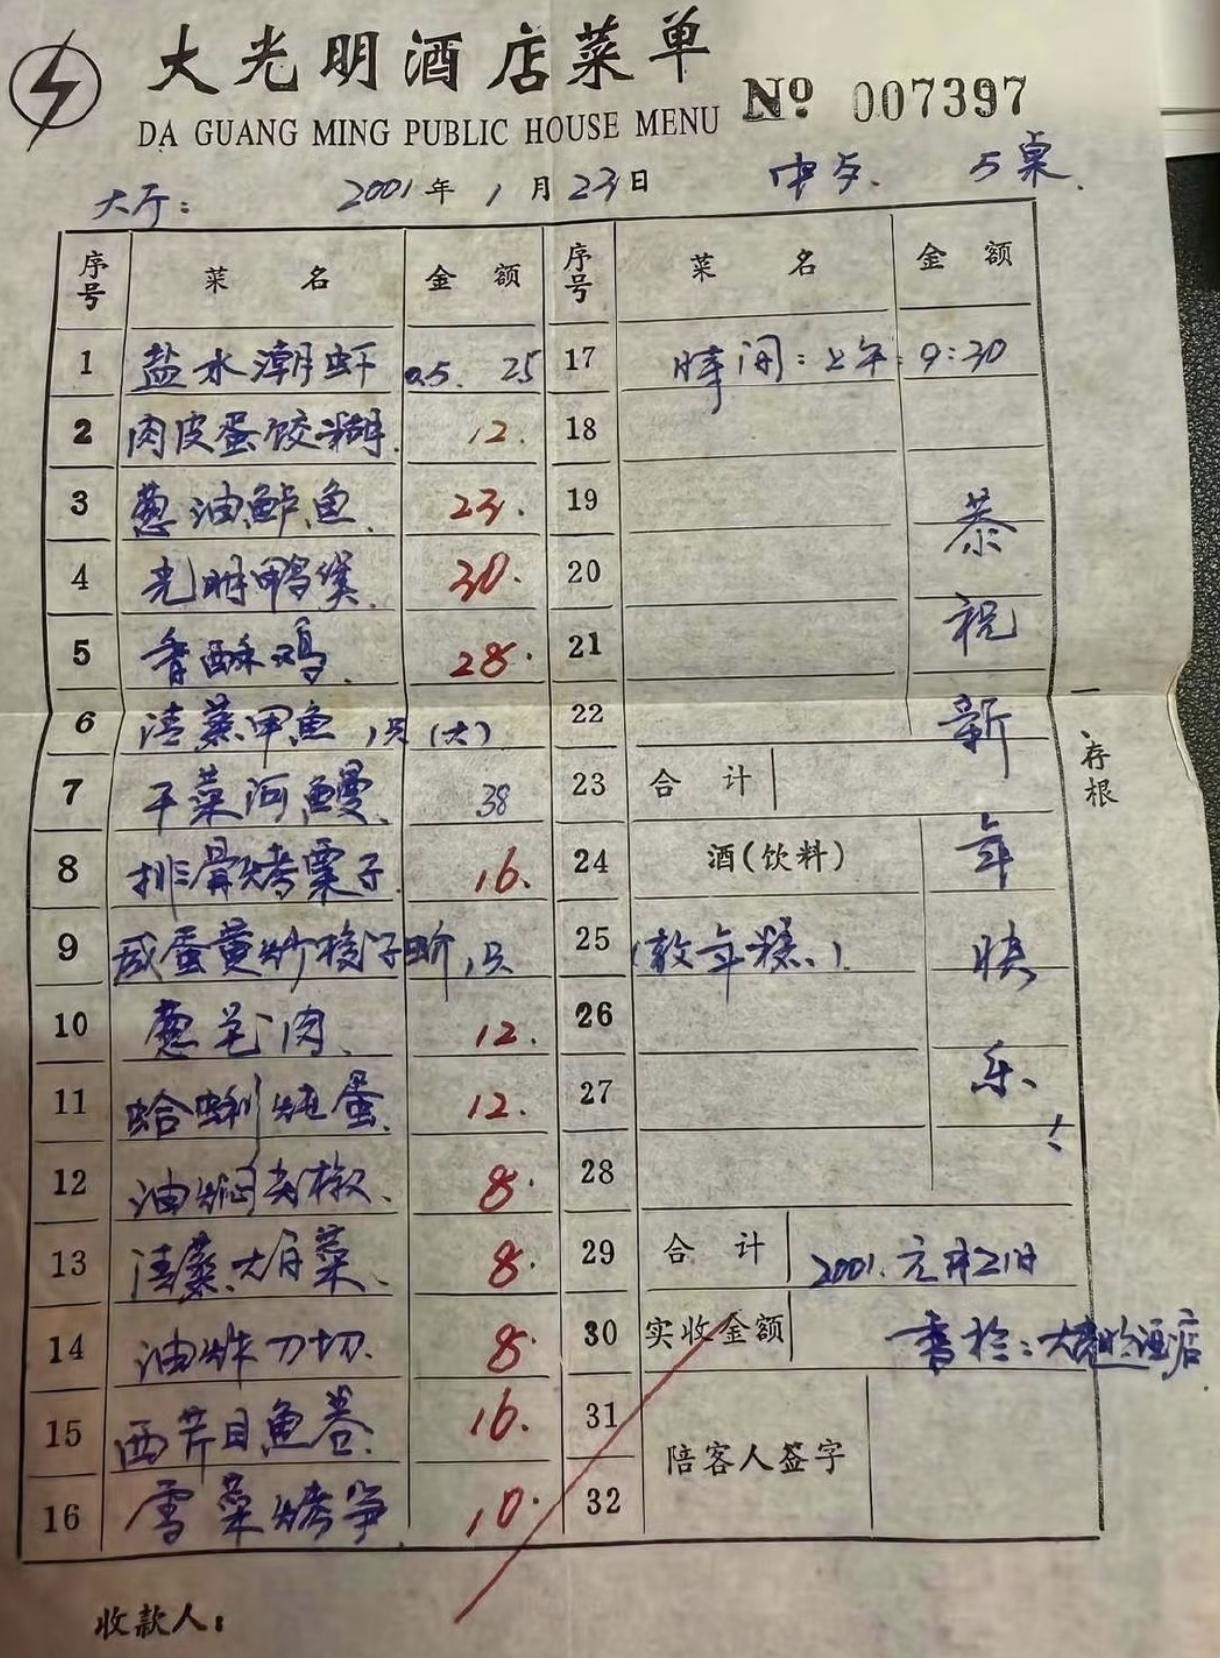 大光明酒店菜单
DA GUANG MING PUBLIC HOUSE MENU
No 007397
大厅: 2001年1月23日 中午. 5桌.
序号 菜名 金额 序号 菜名 金额
1 盐水潮虾 0.5. 25 17 时间:上午:9:30
2 肉皮蛋饺糊. 12. 18
3 葱油鲈鱼. 23. 19
4 光明鸭煲. 30. 20
5 香酥鸡. 28. 21
6 清蒸甲鱼 1只(大) 22
7 干菜河鳗. 38 23 合计
8 排骨烤栗子. 16. 24 酒(饮料)
9 咸蛋黄炒梭子蚧 1只 25 (散年糕.)
10 葱毛肉. 12. 26
11 蛤蜊炖蛋. 12. 27
12 油焖尖椒. 8. 28
13 清蒸大肴菜. 8. 29 合计 2001.元月21日
14 油炸刀切. 8. 30 实收金额 书于:大光明酒店
15 西芹目鱼卷. 16. 31 陪客人签字
16 雪菜烤笋. 10. 32
恭祝新年快乐!
存根
收款人: